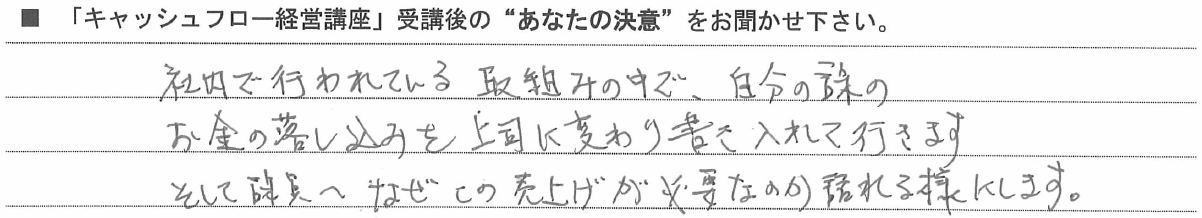 ■ 「キャッシュフロー経営講座」受講後の“あなたの決意”をお聞かせ下さい。
社内で行われている取組みの中で、自分の課の
お金の落し込みを上司に変わり書き入れて行きます
そして課員へなぜこの売上げが必要なのか語れる様にします。